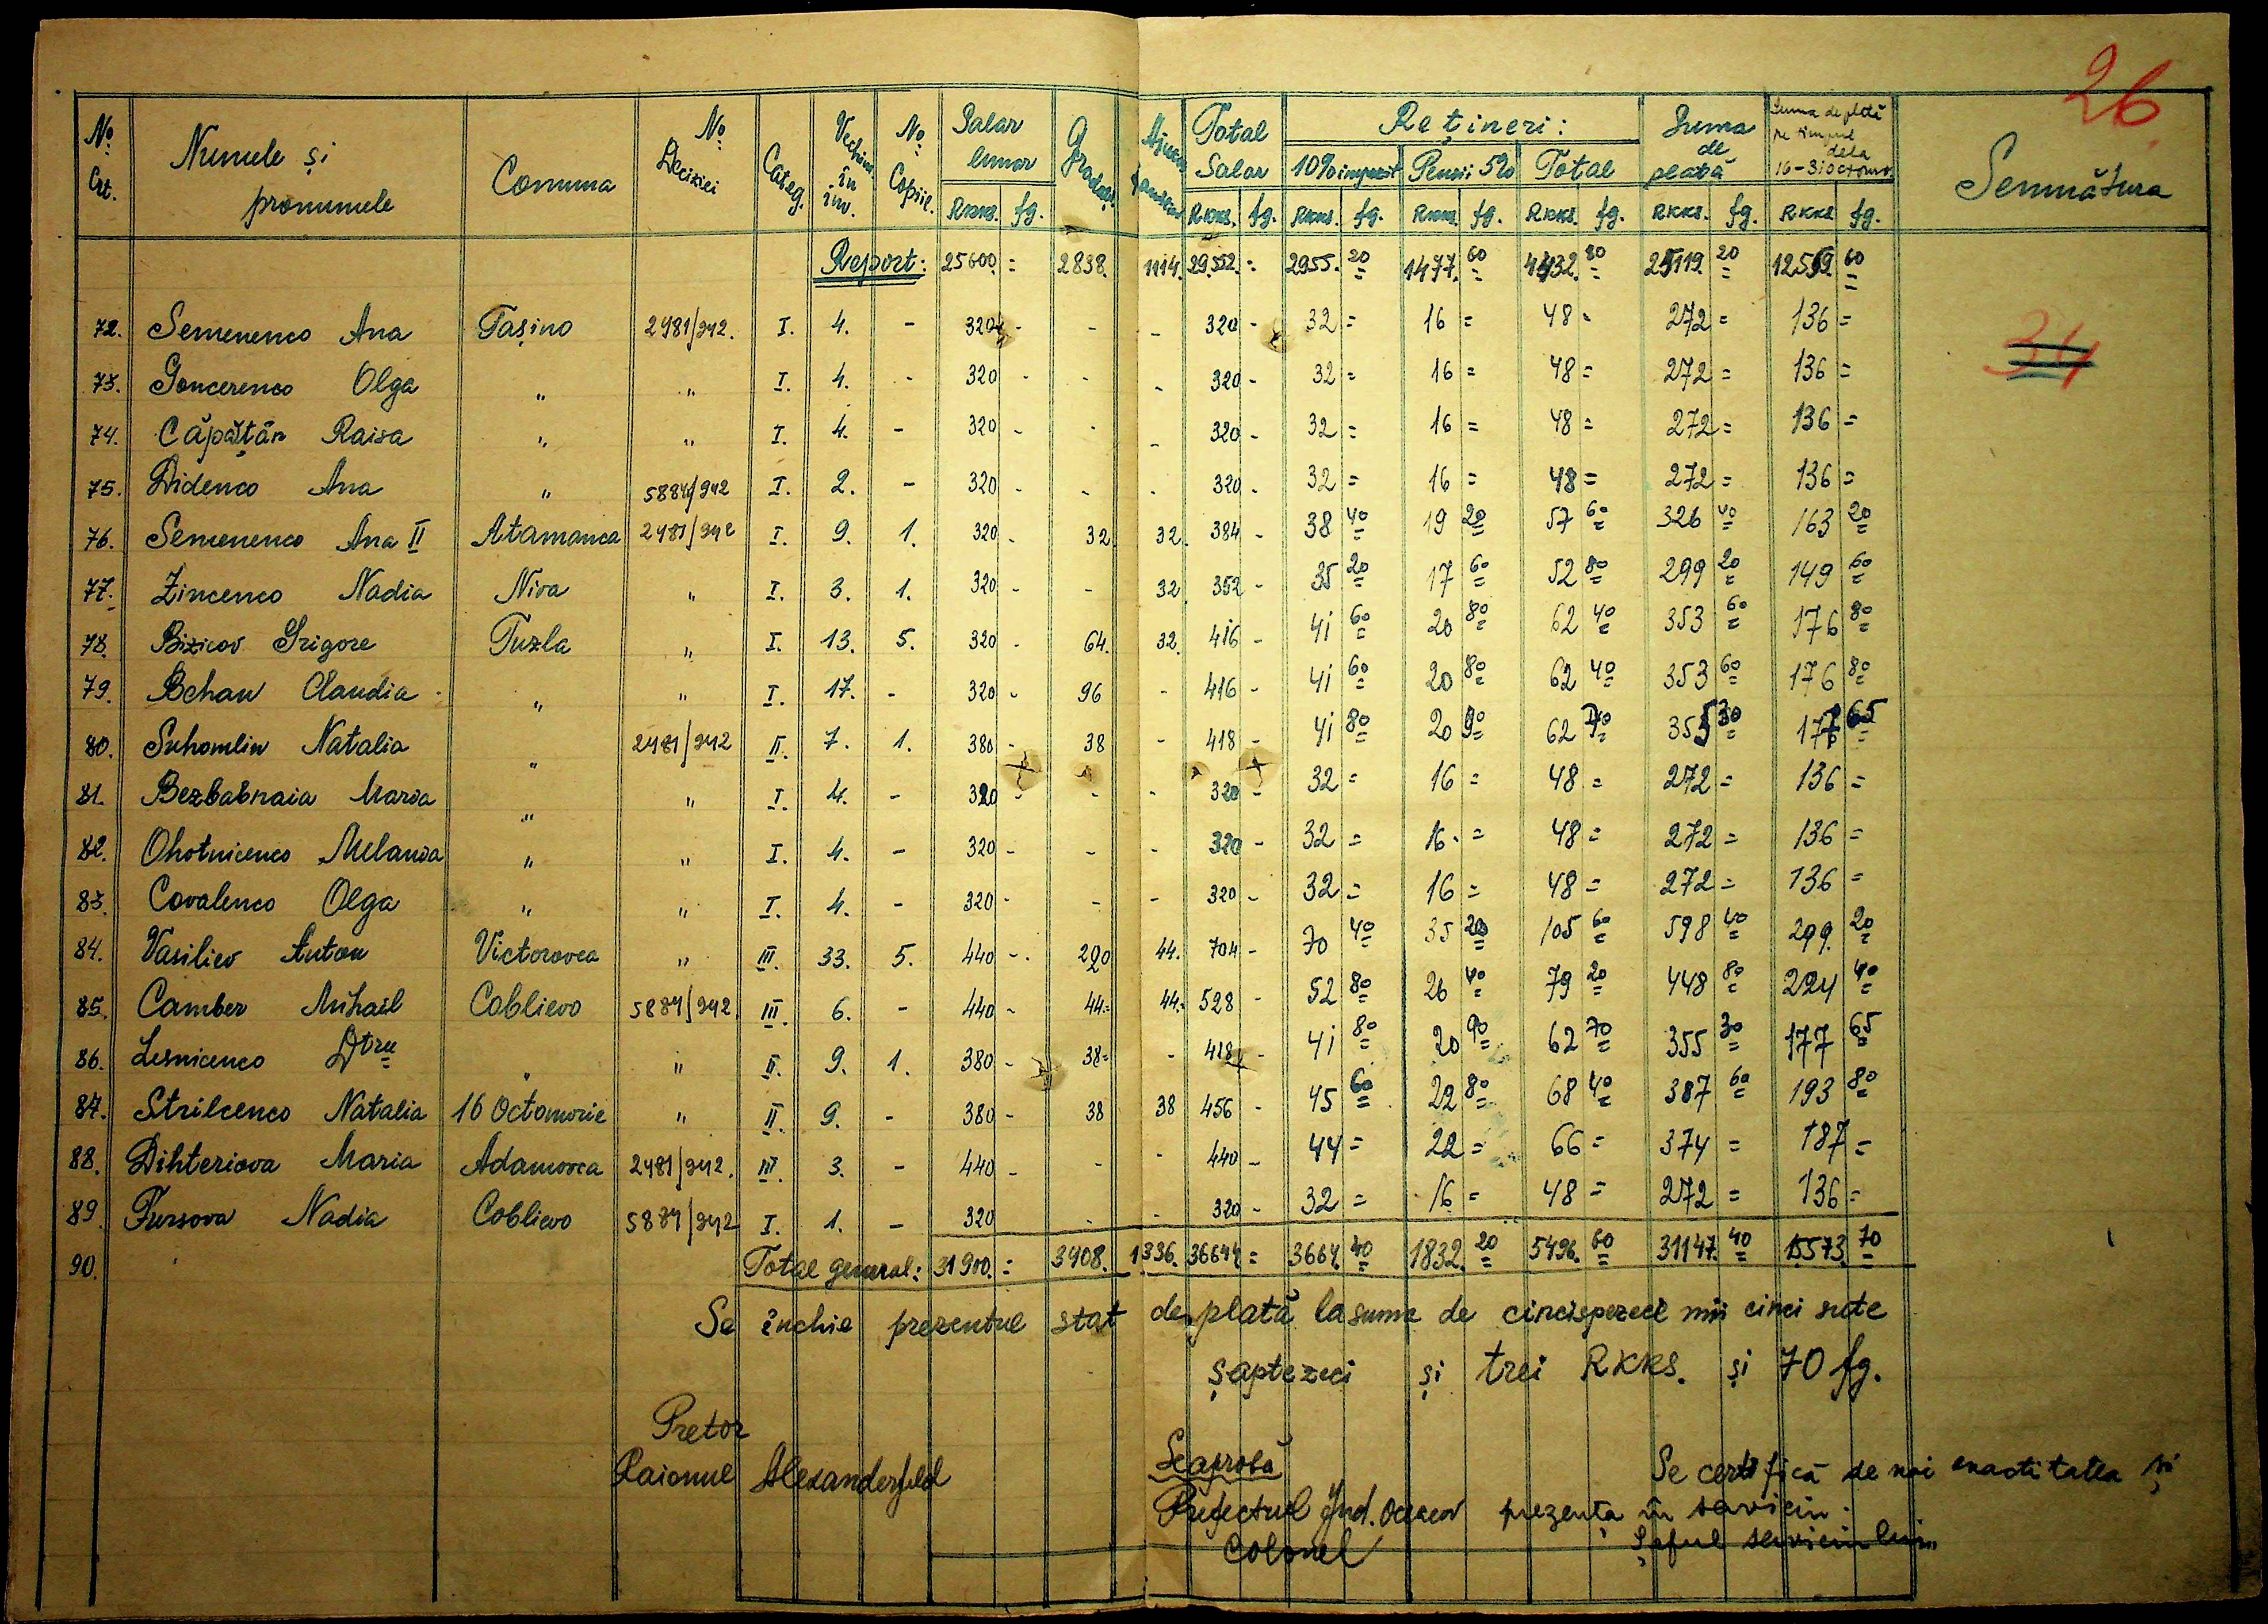 26
No. Crt. | Numele și pronumele | Comuna | No. Deciziei | Categ. | Vechim. în înv. | No. Copiil. | Salar lunar | Gradații | Ajutor familiar | Total Salar | Rețineri: | Suma de plată | Suma de plată pe timpul dela 16-31 Octomv. | Semnătura
10% impozit | Pensii 5% | Total
RKKS. fg. | RKKS. fg. | RKKS. fg. | RKKS. fg. | RKKS. fg. | RKKS. fg. | RKKS fg.
Report: 25600 = 2838. 1114. 29.552.= 2955. 20 1477. 60 4432. 80 25119. 20 12559. 60
72. Semenenco Ana Tașino 2481/942. I. 4. - 320 - - - 320 - 32 = 16 = 48 = 272 = 136 =
34
73. Goncerenco Olga " " I. 4. - 320 - - - 320 - 32 = 16 = 48 = 272 = 136 =
74. Căpățăn Raisa " " I. 4. - 320 - - - 320 - 32 = 16 = 48 = 272 = 136 =
75. Didenco Ana " 5884/942 I. 2. - 320 - - - 320 - 32 = 16 = 48 = 272 = 136 =
76. Semenenco Ana II Atamanca 2481/942 I. 9. 1. 320 - 32 32. 384 - 38 40 19 20 57 60 326 40 163 20
77. Zincenco Nadia Niva " I. 3. 1. 320 - - 32 352 - 35 20 17 60 52 80 299 20 149 60
78. Bizicov Grigore Tuzla " I. 13. 5. 320 - 64. 32. 416 - 41 60 20 80 62 40 353 60 176 80
79. Behau Claudia " " I. 17. - 320 - 96 - 416 - 41 60 20 80 62 40 353 60 176 80
80. Suhomlin Natalia " 2481/942 II. 7. 1. 380 - 38 - 418 - 41 80 20 90 62 70 355 30 177 65
81. Bezbabnaia Maria " " I. 4. - 320 - - - 320 - 32 = 16 = 48 = 272 = 136 =
82. Ohotnicenco Melania " " I. 4. - 320 - - - 320 - 32 = 16. = 48 = 272 = 136 =
83. Covalenco Olga " " I. 4. - 320 - - - 320 - 32 = 16 = 48 = 272 = 136 =
84. Vasiliev Anton Victorovca " III. 33. 5. 440 - 220 44. 704 - 70 40 35 20 105 60 598 40 299. 20
85. Camber Mihail Coblievo 5884/942 III. 6. - 440 - 44= 44= 528 - 52 80 26 40 79 20 448 80 224 40
86. Lesnicenco Dtru " " II. 9. 1. 380 - 38= - 418 - 41 80 20 90 62 70 355 30 177 65
87. Strilcenco Natalia 16 Octomvrie " II. 9. - 380 - 38 38 456 - 45 60 22 80 68 40 387 60 193 80
88. Dihteriova Maria Adamovca 2481/942. III. 3. - 440 - - - 440 - 44 = 22 = 66 = 374 = 187 =
89. Fursova Nadia Coblievo 5884/942 I. 1. - 320 - - 320 - 32 = 16 = 48 = 272 = 136 =
90. Total general: 31900. = 3408. 1336. 36644 = 3664. 40 1832. 20 5496. 60 31147. 40 15573. 70
Se închie prezentul stat de plată la suma de cincisprezece mii cinci sute
șaptezeci și trei RKKS. și 70 fg.
Pretor
Raionul Alexanderfeld
Se aprobă
Prefectul Jud. Oceacov
Colonel
Se certifică de noi exactitatea și
prezența în serviciu.
Șeful serviciului